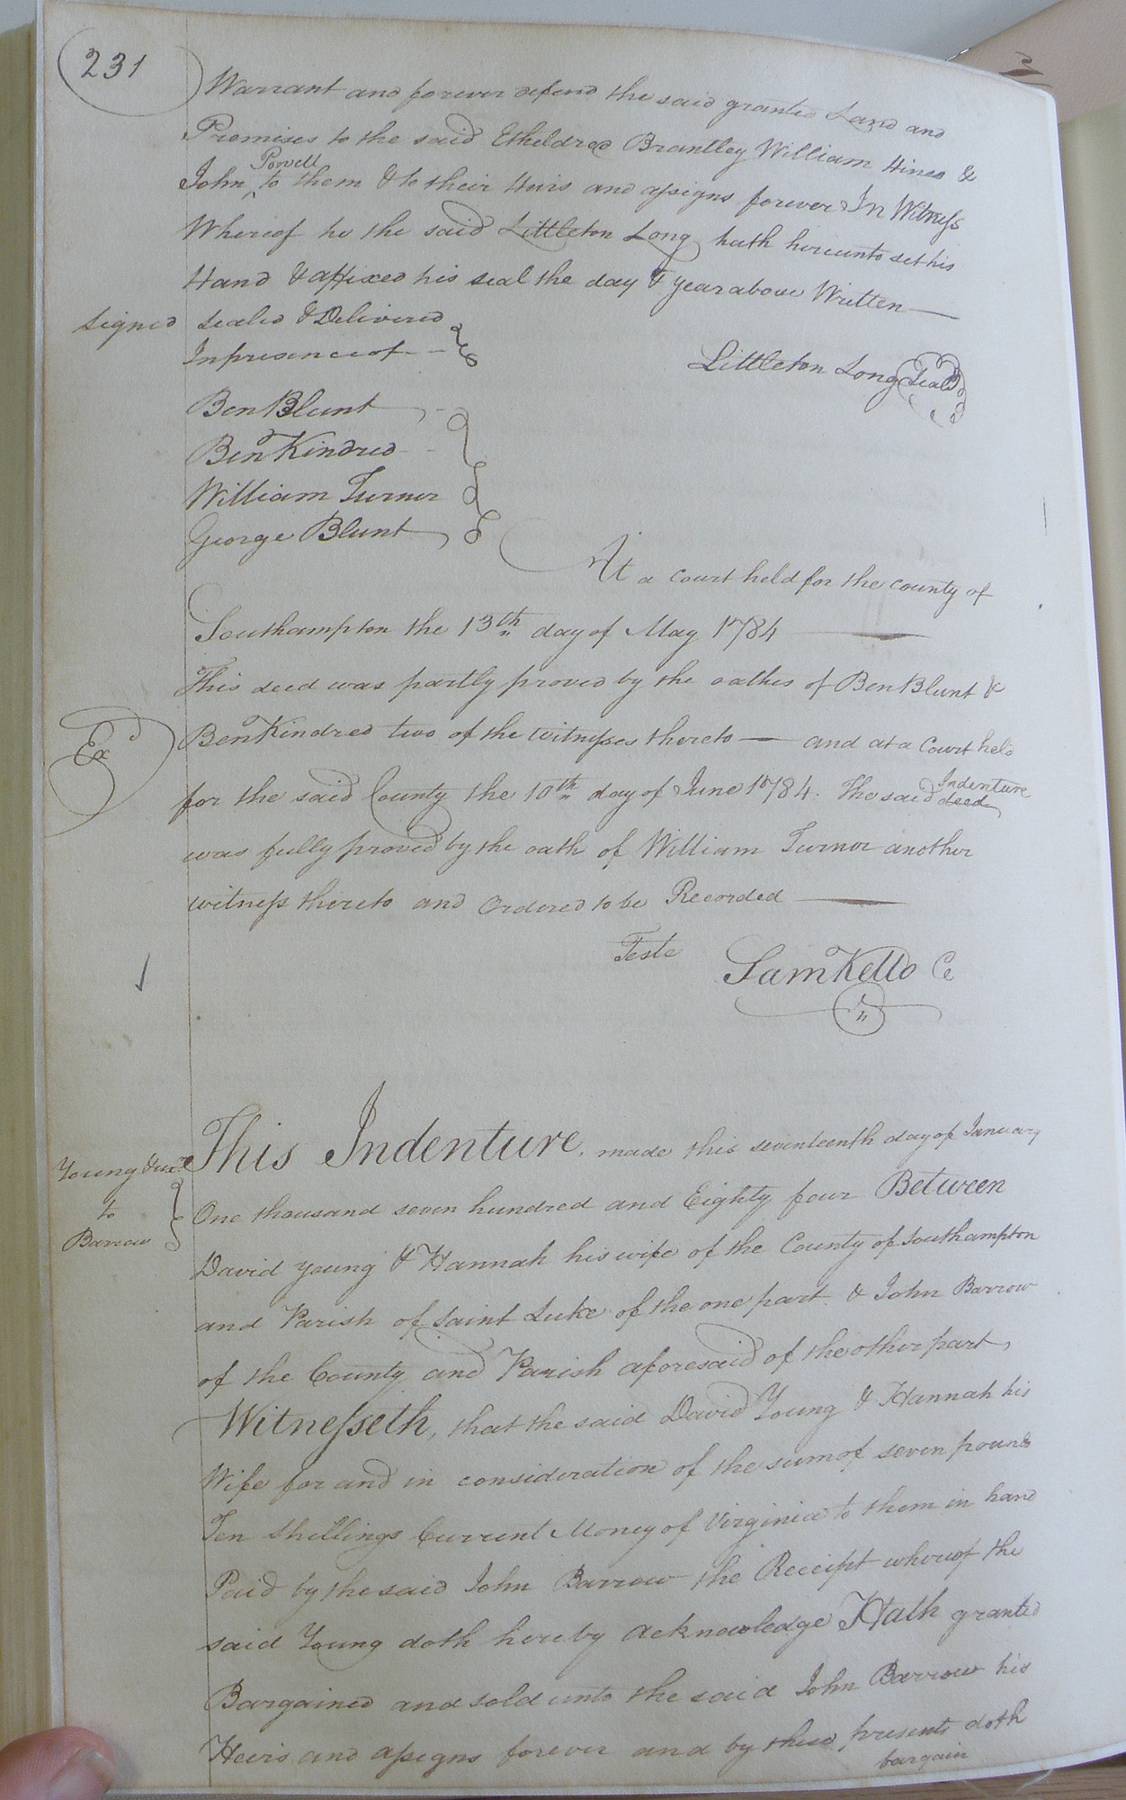 231
Warrant and forever defend the said granted Land and
Premises to the said Etheldred Brantley William Hines &
Powell
John ^ to them & to their Heirs and assigns forever In Witness
Whereof he the said Littleton Long hath hereunto set his
Hand & affixed his seal the day & year above Written
Signed sealed & Delivered
In presence of
Littleton Long Seal
Ben Blunt
Ben Kindred
William Turner
George Blunt
At a court held for the county of
Southampton the 13th day of May 1784
This deed was partly proved by the oathes of Ben Blunt &
Exd
Ben Kindred two of the witnesses thereto — and at a Court held
Indenture
for the said County the 10th day of June 1784. The said deed
was fully proved by the oath of William Turner another
witness thereto and Ordered to be Recorded
Teste Sam Kello Cc
Young & ux
to
Barrow
This Indenture, made this seventeenth day of January
One thousand seven hundred and Eighty four Between
David Young & Hannah his wife of the County of Southampton
and Parish of Saint Luke of the one part & John Barrow
of the County and Parish aforesaid of the other part
Witnesseth, that the said David Young & Hannah his
Wife for and in consideration of the sum of seven pounds
Ten Shillings Current Money of Virginia to them in hand
Paid by the said John Barrow the Receipt whereof the
said Young doth hereby acknowledge Hath granted
Bargained and sold unto the said John Barrow his
Heirs and assigns forever and by these presents doth
bargain